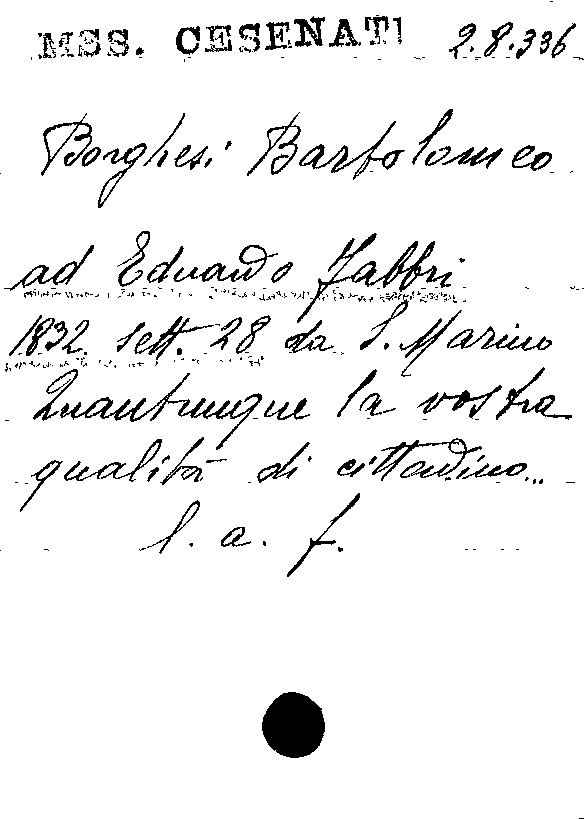 MSS. CESENATI 2.8.336
Borghesi Bartolomeo
ad Eduardo Fabbri
1832 sett. 28 da S. Marino
Quantunque la vostra
qualità di cittadino...
l. a. f.